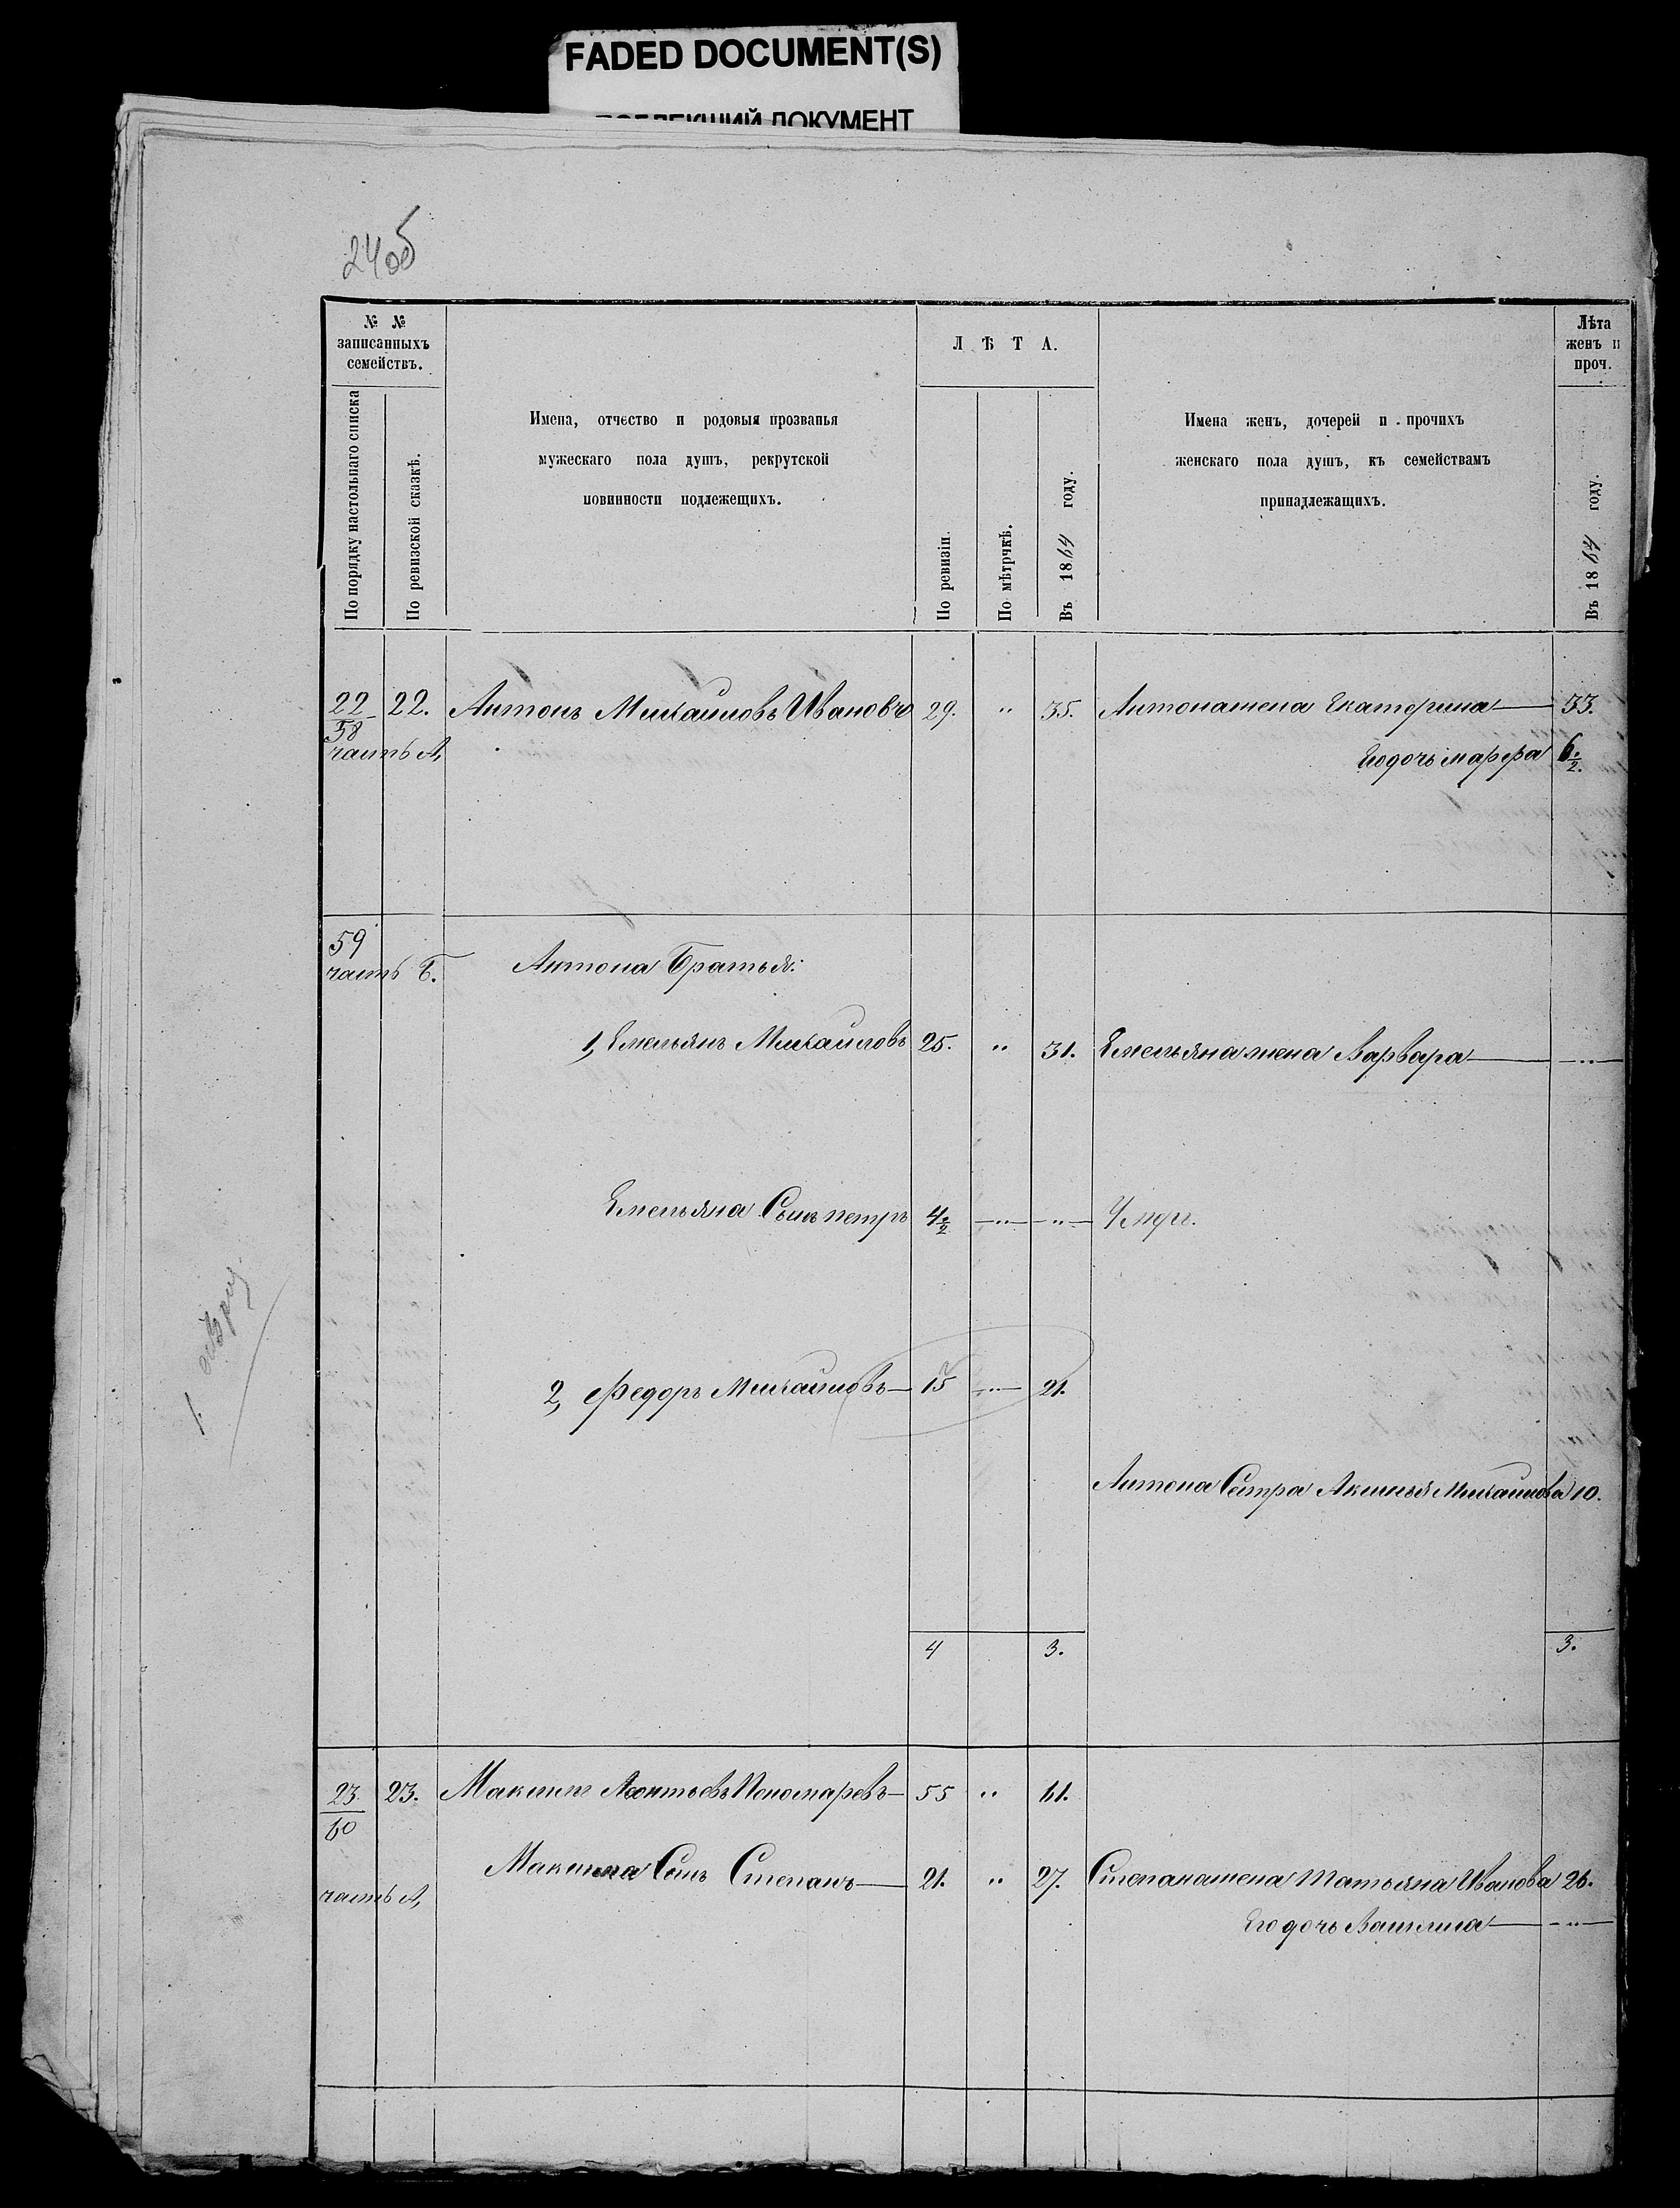 FADED DOCUMENT(S)
ДОКУМЕНТ
24об
№ №
записанныхъ
семействъ.
По порядку настольнаго списка
По ревизской сказкѣ.
Имена, отчество и родовыя прозванья
мужескаго пола душъ, рекрутской
повинности подлежещихъ.
ЛѢТА.
По ревизіи.
По мѣтрчкѣ.
Въ 1864 году.
Имена женъ, дочерей и прочихъ
женскаго пола душъ, къ семействамъ
принадлежащихъ.
Лѣта
женъ и
проч.
Въ 1864 году.
22 22. Антонъ Михаиловъ Ивановъ 29. " 35. Антона жена Екатерина 33.
58
часть А, Его дочь марфа 6.½.
59
часть Б. Антона Братья:
1, Емельянъ Михаиловъ 25. " 31. Емельяна жена Варвара — " —
Емельяна Сынъ петръ 4½ — " — — " — Умеръ.
2, Федоръ Михаиловъ 15 — " — 21.
Антона Сестра Аксинья Михаилова 10.
4 3. 3.
23 23. Максимъ Леонтьевъ Пономаревъ 55 " 61.
60
Максима Сынъ Степанъ 21. " 27. Степана жена Татьяна Иванова 26.
часть А,
Его дочь Василиса — " —